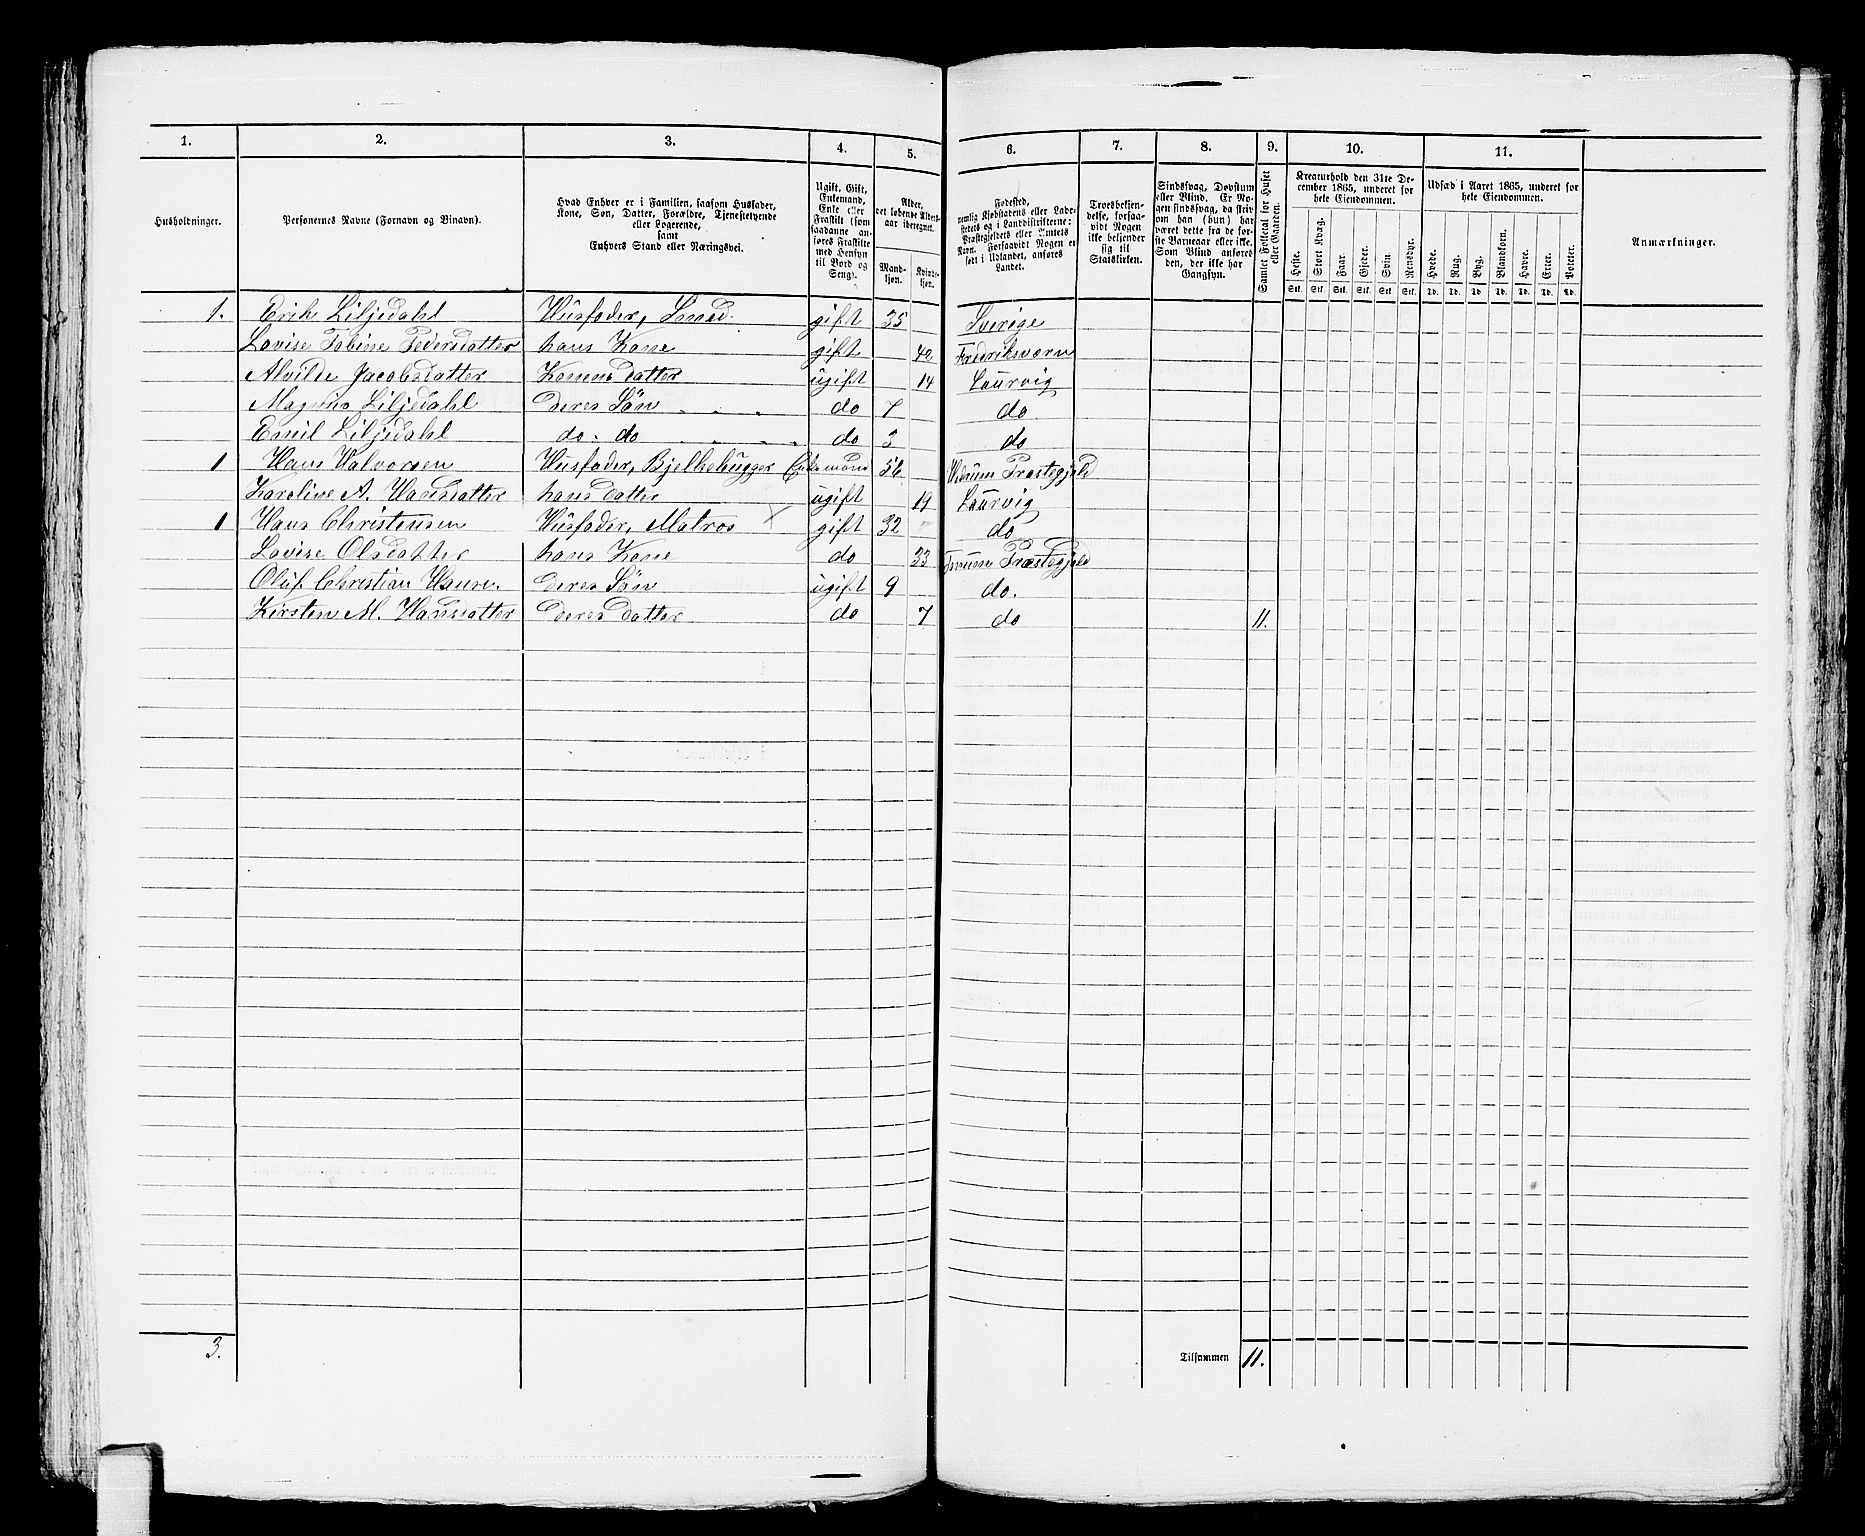 1. 2. 3. 4. 5. 6. 7. 8. 9. 10. 11.
Husholdninger.
Personernes Navne (Fornavn og Binavn).
Hvad Enhver er i Familien, saasom Husfader, Kone, Søn, Datter, Forældre, Tjenestetyende eller Logerende,
samt
Enhvers Stand eller Næringsvei.
Ugift, Gift, Enkemand, Enke eller Fraskilt (som saadanne anføres Fraskilte med Hensyn til Bord og Seng).
Alder, det løbende Alders-aar iberegnet.
Mand-kjøn. Kvinde-kjøn.
Fødested, nemlig Kjøbstadens eller Ladestedets og i Landdistrikterne: Præstegjeldets eller Amtets Navn. Forsaavidt Nogen er født i Udlandet, anføres Landet.
Troesbekjendelse, forsaavidt Nogen ikke bekjender sig til Statskirken.
Sindssvag, Døvstum eller Blind. Er Nogen sindssvag, da skrives om han (hun) har været dette fra de første Barneaar eller ikke. Som Blind anføres den, der ikke har Gangsyn.
Samlet Folketal for Huset eller Gaarden.
Kreaturhold den 31te December 1865, underet for hele Eiendommen.
Heste. Stort Kvæg. Faar. Gjeder. Svin. Rensdyr.
Stk. Stk. Stk. Stk. Stk. Stk.
Udsæd i Aaret 1865, underet for hele Eiendommen.
Hvede. Rug. Byg. Blandkorn. Havre. Erter. Poteter.
Td. Td. Td. Td. Td. Td. Td.
Anmærkninger.
1. Erik Liljedahl Husfader, Smed. gift 35 Sverige
Lovise Tobine Pedersdatter hans Kone gift 42 Fredriksværn
Alvilde Jacobsdatter Konens datter ugift 14 Laurvig
Magnus Liljedahl deres Søn do 7 do
Emil Liljedahl do. do do 3 do
1 Hans Halvorsen Husfader, Bjelkehugger Enkemand 56 Hedrum Præstegjeld
Karoline A. Hansdatter hans datter ugift 19 Laurvig
1 Hans Christensen Husfader, Matros X gift 32 do
Lovise Olsdatter hans Kone do 33 Præstegjeld
Oluf Christian Hansen. deres Søn ugift 9 do.
Kirsten M. Hansdatter deres datter do 7 do 11.
3. Tilsammen 11.